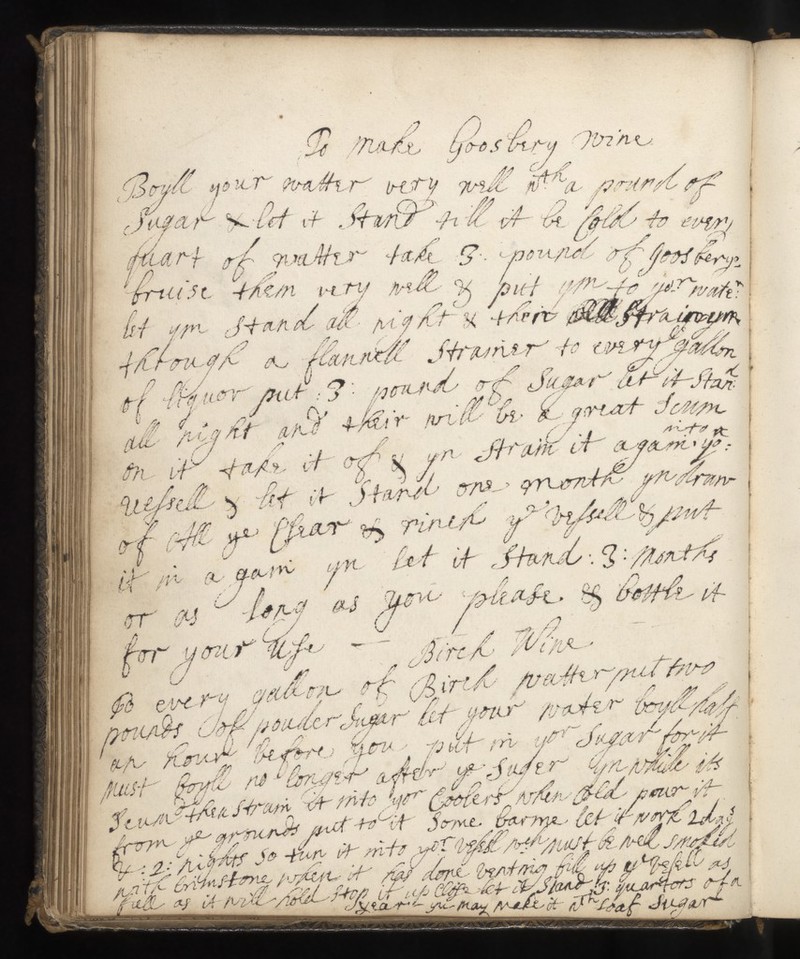 To make Goosbery wine
Boyll your watter very well wth a pound of
Sugar & let it Stand till it be Cold to every
quart of watter take 3: pound of Goosberys
bruise them very well & put ym to yor water
let ym Stand all night & then Strain ym
through a flannell Strainer to every gallon
of liquor put :3: pound of Sugar let it Stand
all night and their will be a great Scum
on it take it of & yn Strain it again into yor:
vessell & let it Stand one month yn draw
of All ye Clear & rinch ye vessell & put
it in again yn let it Stand :3: months
or as long as you please & bottle it
for your Use — Birch Wine
To every gallon of Birch watter put two
pounds of pouder Sugar let your water boyll half
an hour before you put in yor Sugar for it
must boyll no longer after ye Suger yn while its
Scumd then Strain it into yor Coolers when Cold pour it
from ye grounds put to it Some barme let it work 2 days
& :2: nights So tun it into yor vessell wch must be well smoked
with brimstone when it has done venting fill up ye vessell as
full as it will hold Stop it up Close let it Stand :3: quartors of a
year yn you may make it wth loaf Sugar